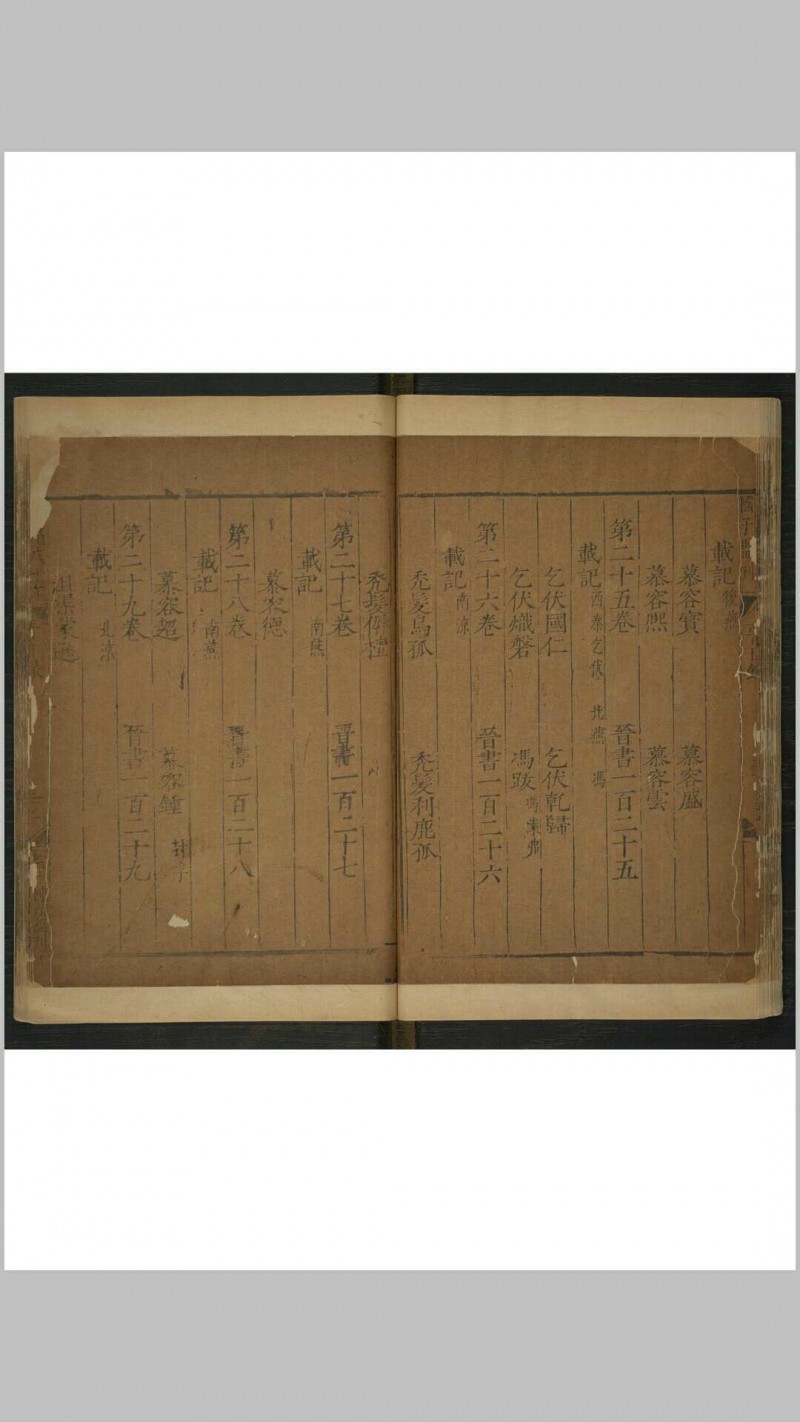 載記 後燕
慕容寶 慕容盛
慕容熙 慕容雲
第二十五卷 晉書一百二十五
載記 西秦乞伏 北燕馮
乞伏國仁 乞伏乾歸
乞伏熾磐 馮跋 馮素弗
第二十六卷 晉書一百二十六
載記 南涼
禿髮烏孤 禿髮利鹿孤
禿髮傉檀
第二十七卷 晉書一百二十七
載記 南燕
慕容德
第二十八卷 晉書一百二十八
載記 南燕
慕容超 慕容鍾 封孚
第二十九卷 晉書一百二十九
載記 北涼
沮渠蒙遜